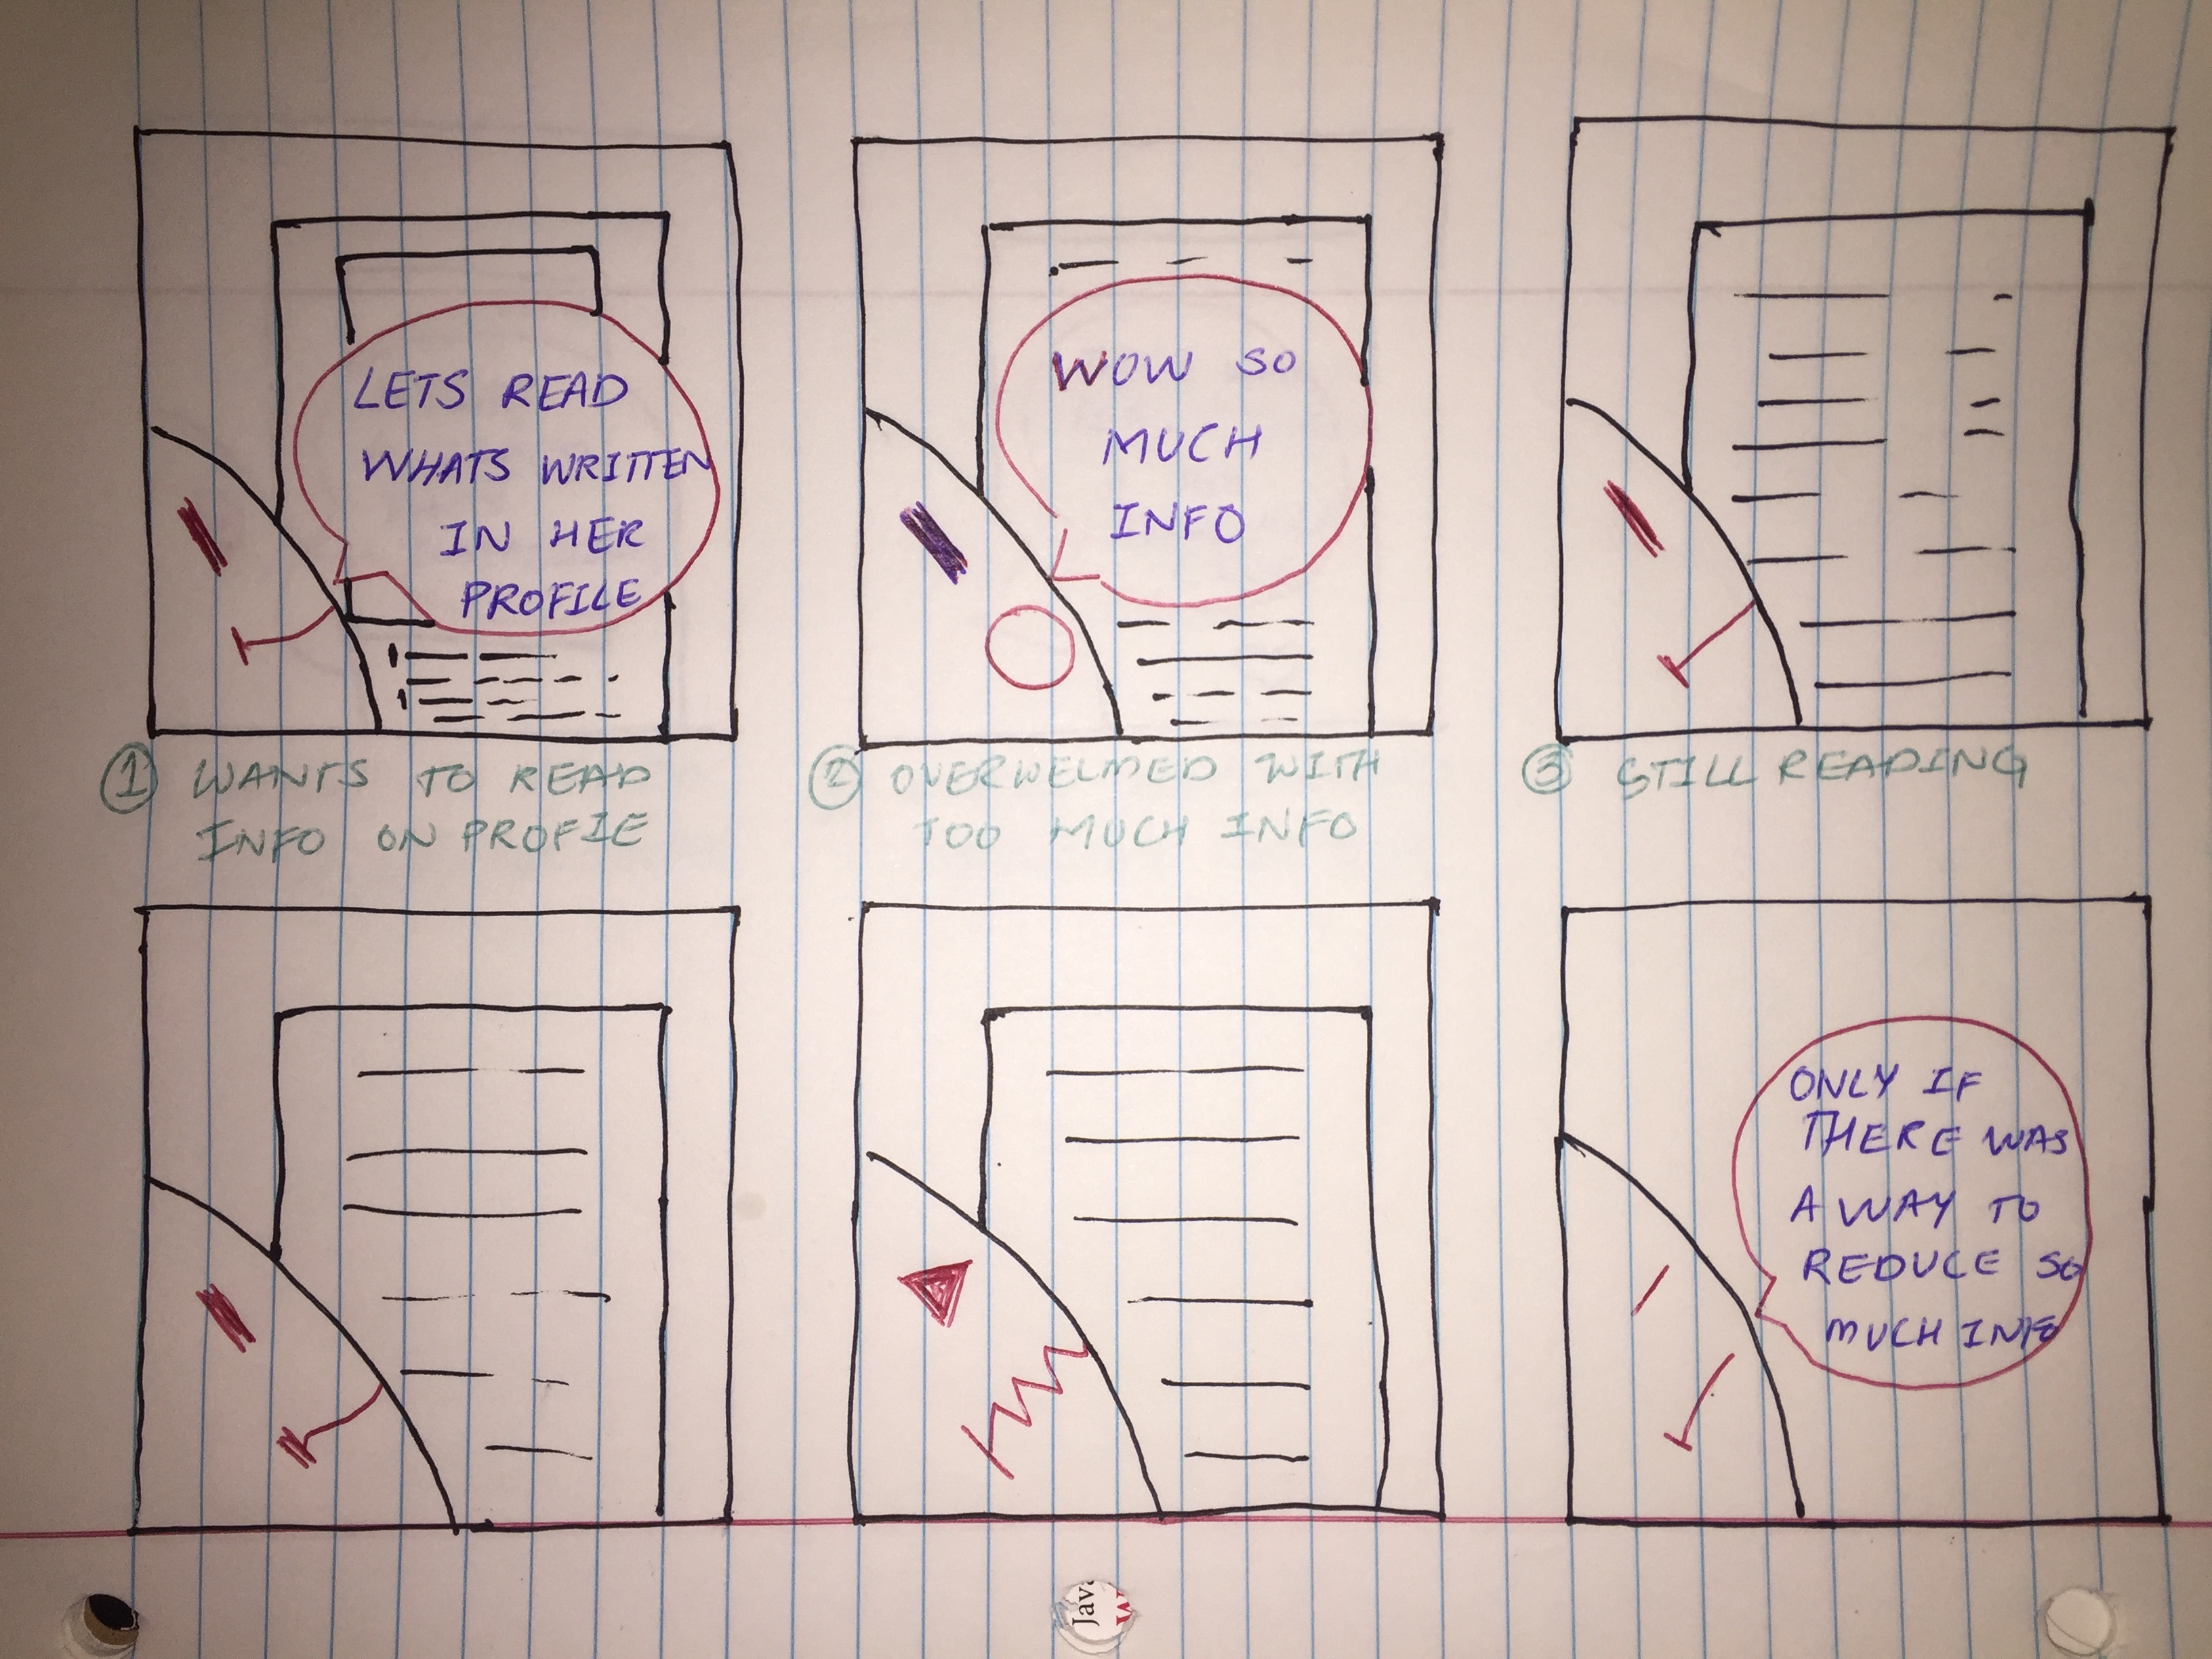 LETS READ
WHATS WRITTEN
IN HER
PROFILE
WOW SO
MUCH
INFO
1 WANTS TO READ
INFO ON PROFIE
2 OVERWELMED WITH
TOO MUCH INFO
3 STILL READING
ONLY IF
THERE WAS
A WAY TO
REDUCE SO
MUCH INFO
Java
W